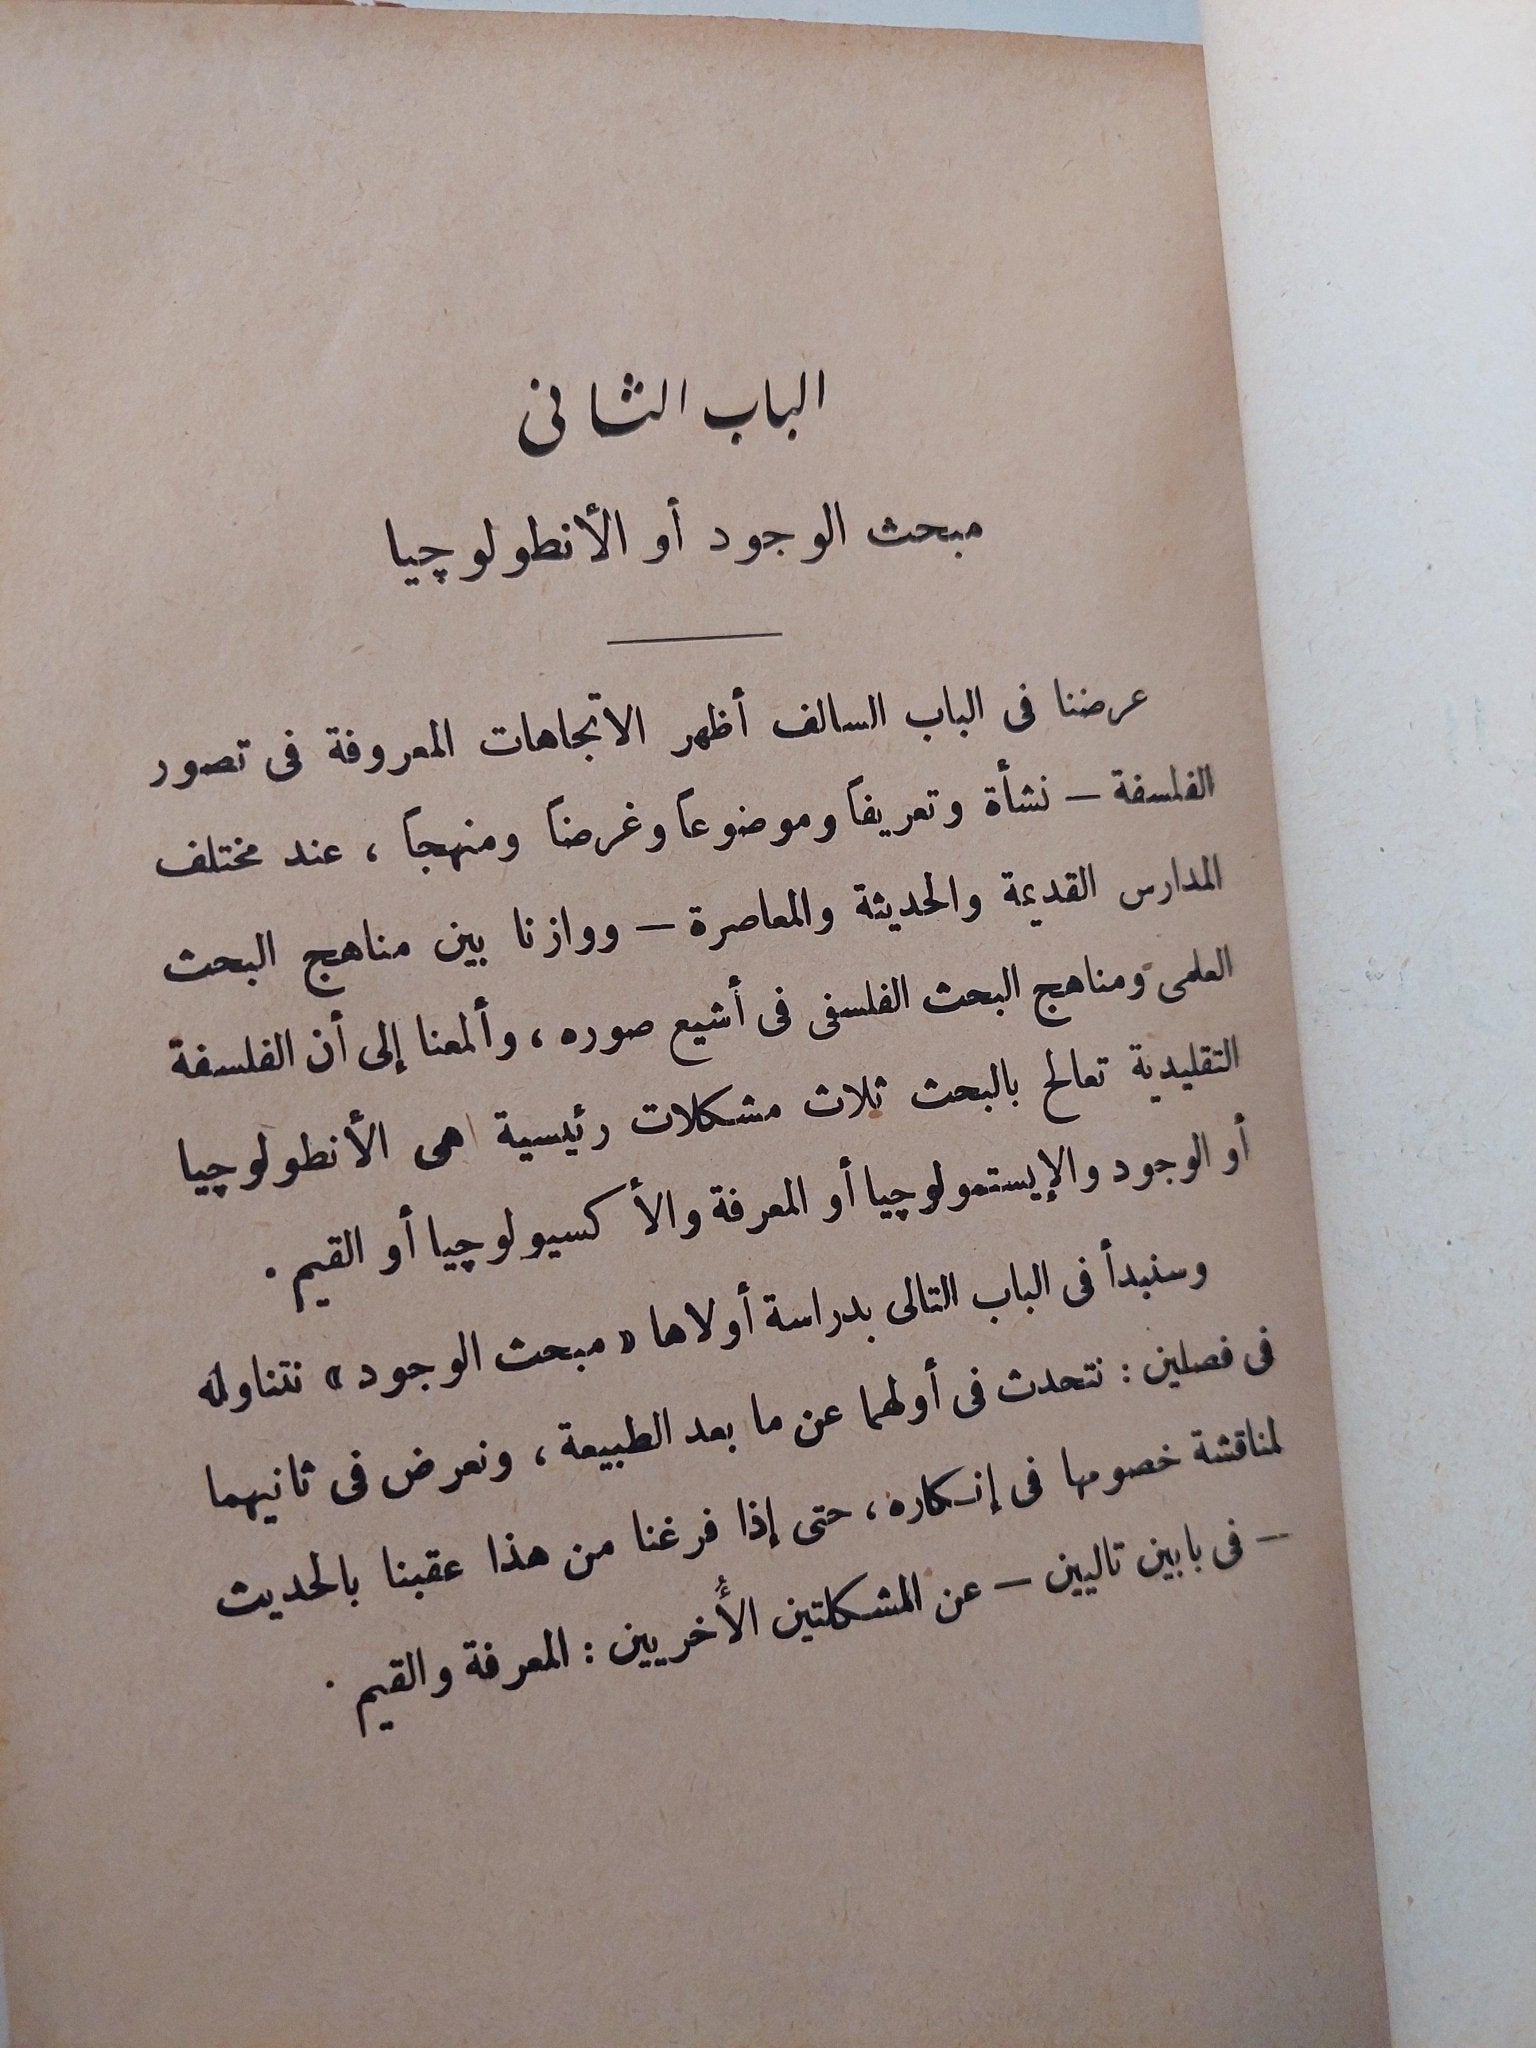 الباب الثانى
مبحث الوجود أو الأنطولوچيا
عرضنا فى الباب السالف أظهر الاتجاهات المعروفة فى تصور
الفلسفة — نشأة وتعريفاً وموضوعاً وغرضاً ومنهجاً ، عند مختلف
المدارس القديمة والحديثة والمعاصرة — ووازنا بين مناهج البحث
العلمى ومناهج البحث الفلسفى فى أشيع صوره ، وألمعنا إلى أن الفلسفة
التقليدية تعالج بالبحث ثلاث مشكلات رئيسية هى الأنطولوچيا
أو الوجود والإيستمولوچيا أو المعرفة والأكسيولوچيا أو القيم .
وسنبدأ فى الباب التالى بدراسة أولاها « مبحث الوجود » نتناوله
فى فصلين : نتحدث فى أولهما عن ما بعد الطبيعة ، ونعرض فى ثانيهما
لمناقشة خصومها فى إنكاره ، حتى إذا فرغنا من هذا عقبنا بالحديث
— فى بابين تاليين — عن المشكلتين الأُخريين : المعرفة والقيم .